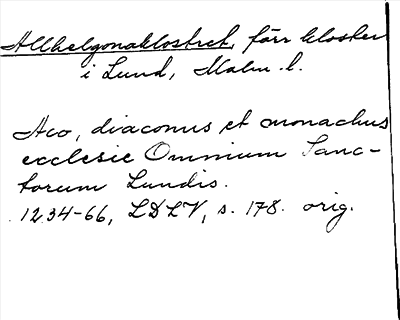 Allhelgonaklostret, förr kloster
i Lund, Malm. l.
Aco, diaconus et monachus
ecclesie Omnium Sanc-
torum Lundis.
1234-66, LDLV, s. 178. orig.